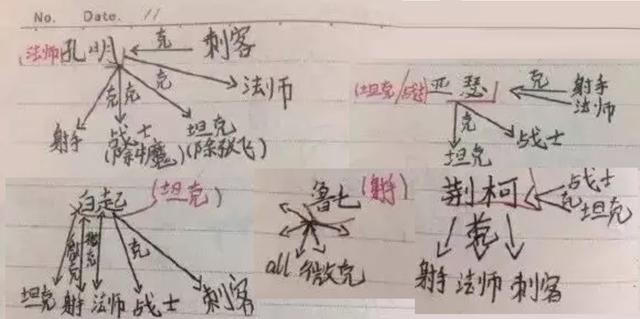 No. Date. 11
(法师)孔明 克 刺客
克 克 克 法师
射手 战士 坦克
(除牛魔) (除张飞)
(坦克/战士)亚瑟 克 射手
法师
克 战士
坦克
白起 (坦克)
克 微克 克
坦克 射手 法师 战士 刺客
鲁七 (射手)
all 微克
荆柯 战士
克 坦克
克
射手 法师 刺客